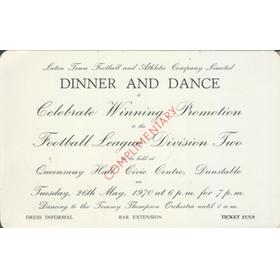 Luton Town Football and Athletic Company Limited
DINNER AND DANCE
to
Celebrate Winning Promotion
to the
Football League Division Two
to be held at
Queensway Hall, Civic Centre, Dunstable
on
Tuesday, 26th May, 1970 at 6 p.m. for 7 p.m.
Dancing to the Tommy Thompson Orchestra until 1 a.m.
DRESS INFORMAL BAR EXTENSION TICKET
COMPLIMENTARY